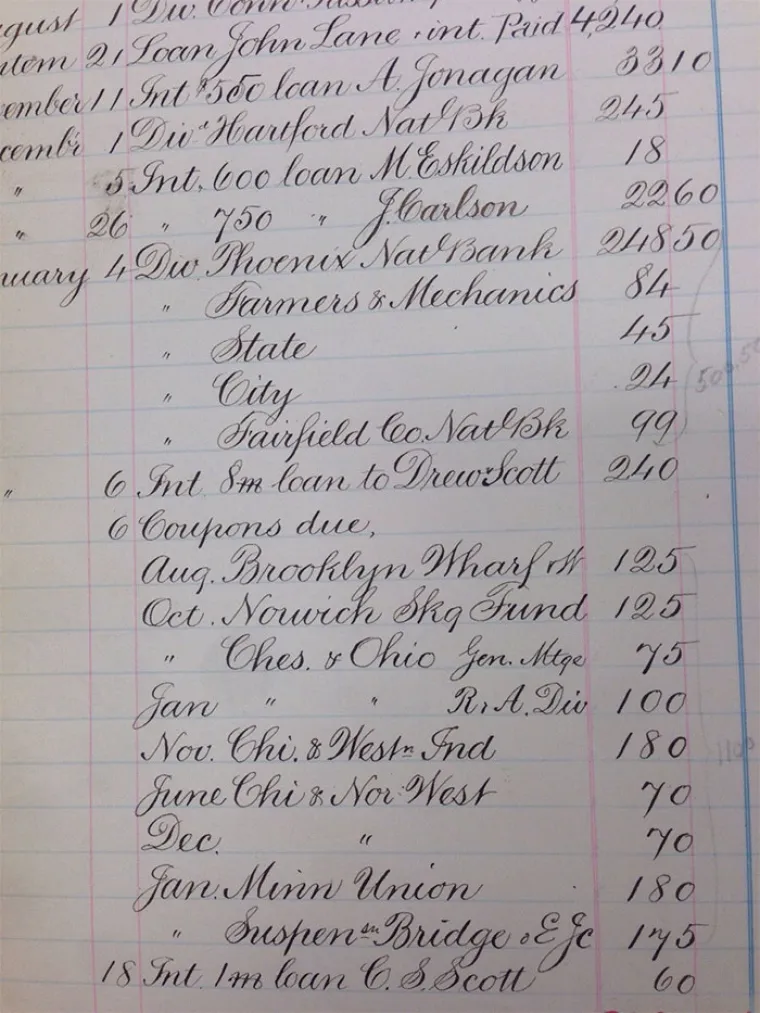 gust 1 Div. Conn
tem 21 Loan John Lane & int. Paid 4,240
ember 11 Int $550 loan A. Jonagan 33 10
cembr 1 Divd Hartford Natl Bk 245
" 5 Int. 600 loan M. Eskildson 18
" 26 " 750 " J. Carlson 22 60
nuary 4 Div. Phoenix Natl Bank 248 50
" Farmers & Mechanics 84
" State 45
" City 24
" Fairfield Co. Natl Bk 99
" 6 Int 8m loan to Drew Scott 240
6 Coupons due,
Aug. Brooklyn Wharf & W 125
Oct. Norwich Skg Fund 125
" Ches. & Ohio Gen. Mtge 75
Jan " " R & A. Div 100
Nov. Chi. & Westn Ind 180
June Chi & Nor. West 70
Dec. " 70
Jan. Minn Union 180
" Suspensn Bridge & E Jc 175
18 Int. 1m loan C. S. Scott 60